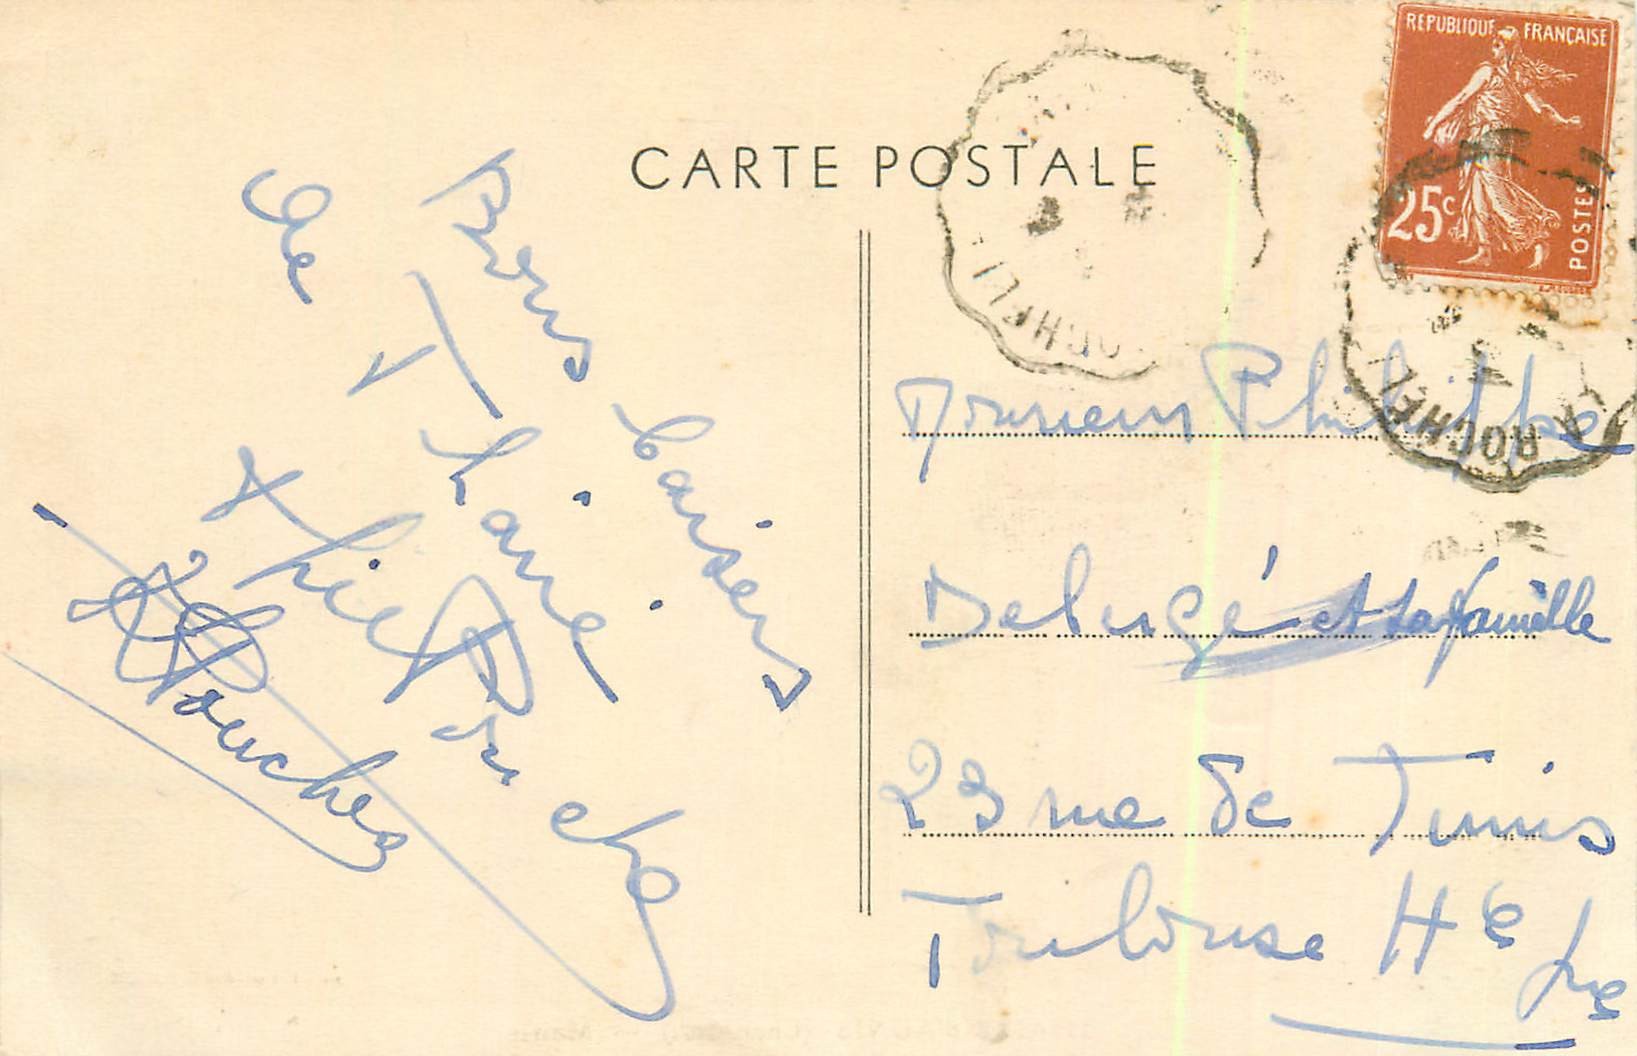 CARTE POSTALE
REPUBLIQUE FRANÇAISE
25c
POSTES
ROCHEL
Bons baisers
de Thaire
Pouche
Monsieur Philippe
Delugé et sa famille
23 rue de Tunis
Toulouse Hte